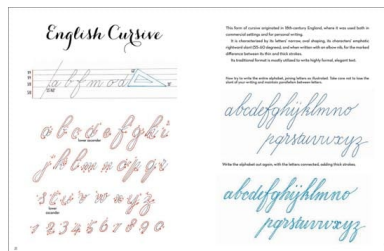 English Cursive
a b f m o d
a b c d e f g h i
j k l m n o p q r
s t u v w x y z
1 2 3 4 5 6 7 8 9 0
This form of cursive originated in 18th-century England, where it was used both in
commercial settings and for personal writing.
It is characterised by its letters' narrow, oval shaping, its characters' emphatic
rightward slant (55-60 degrees), and when written with an elbow nib, for the marked
difference between its thin and thick strokes.
Its traditional format is mostly utilized to write highly formal, elegant text.
Now try to write the entire alphabet, joining letters as illustrated. Take care not to lose the
slant of your writing and maintain parallelism between letters.
abcdefghijklmno
pqrstuvwxyz
Write the alphabet out again, with the letters connected, adding thick strokes.
abcdefghijklmno
pqrstuvwxyz